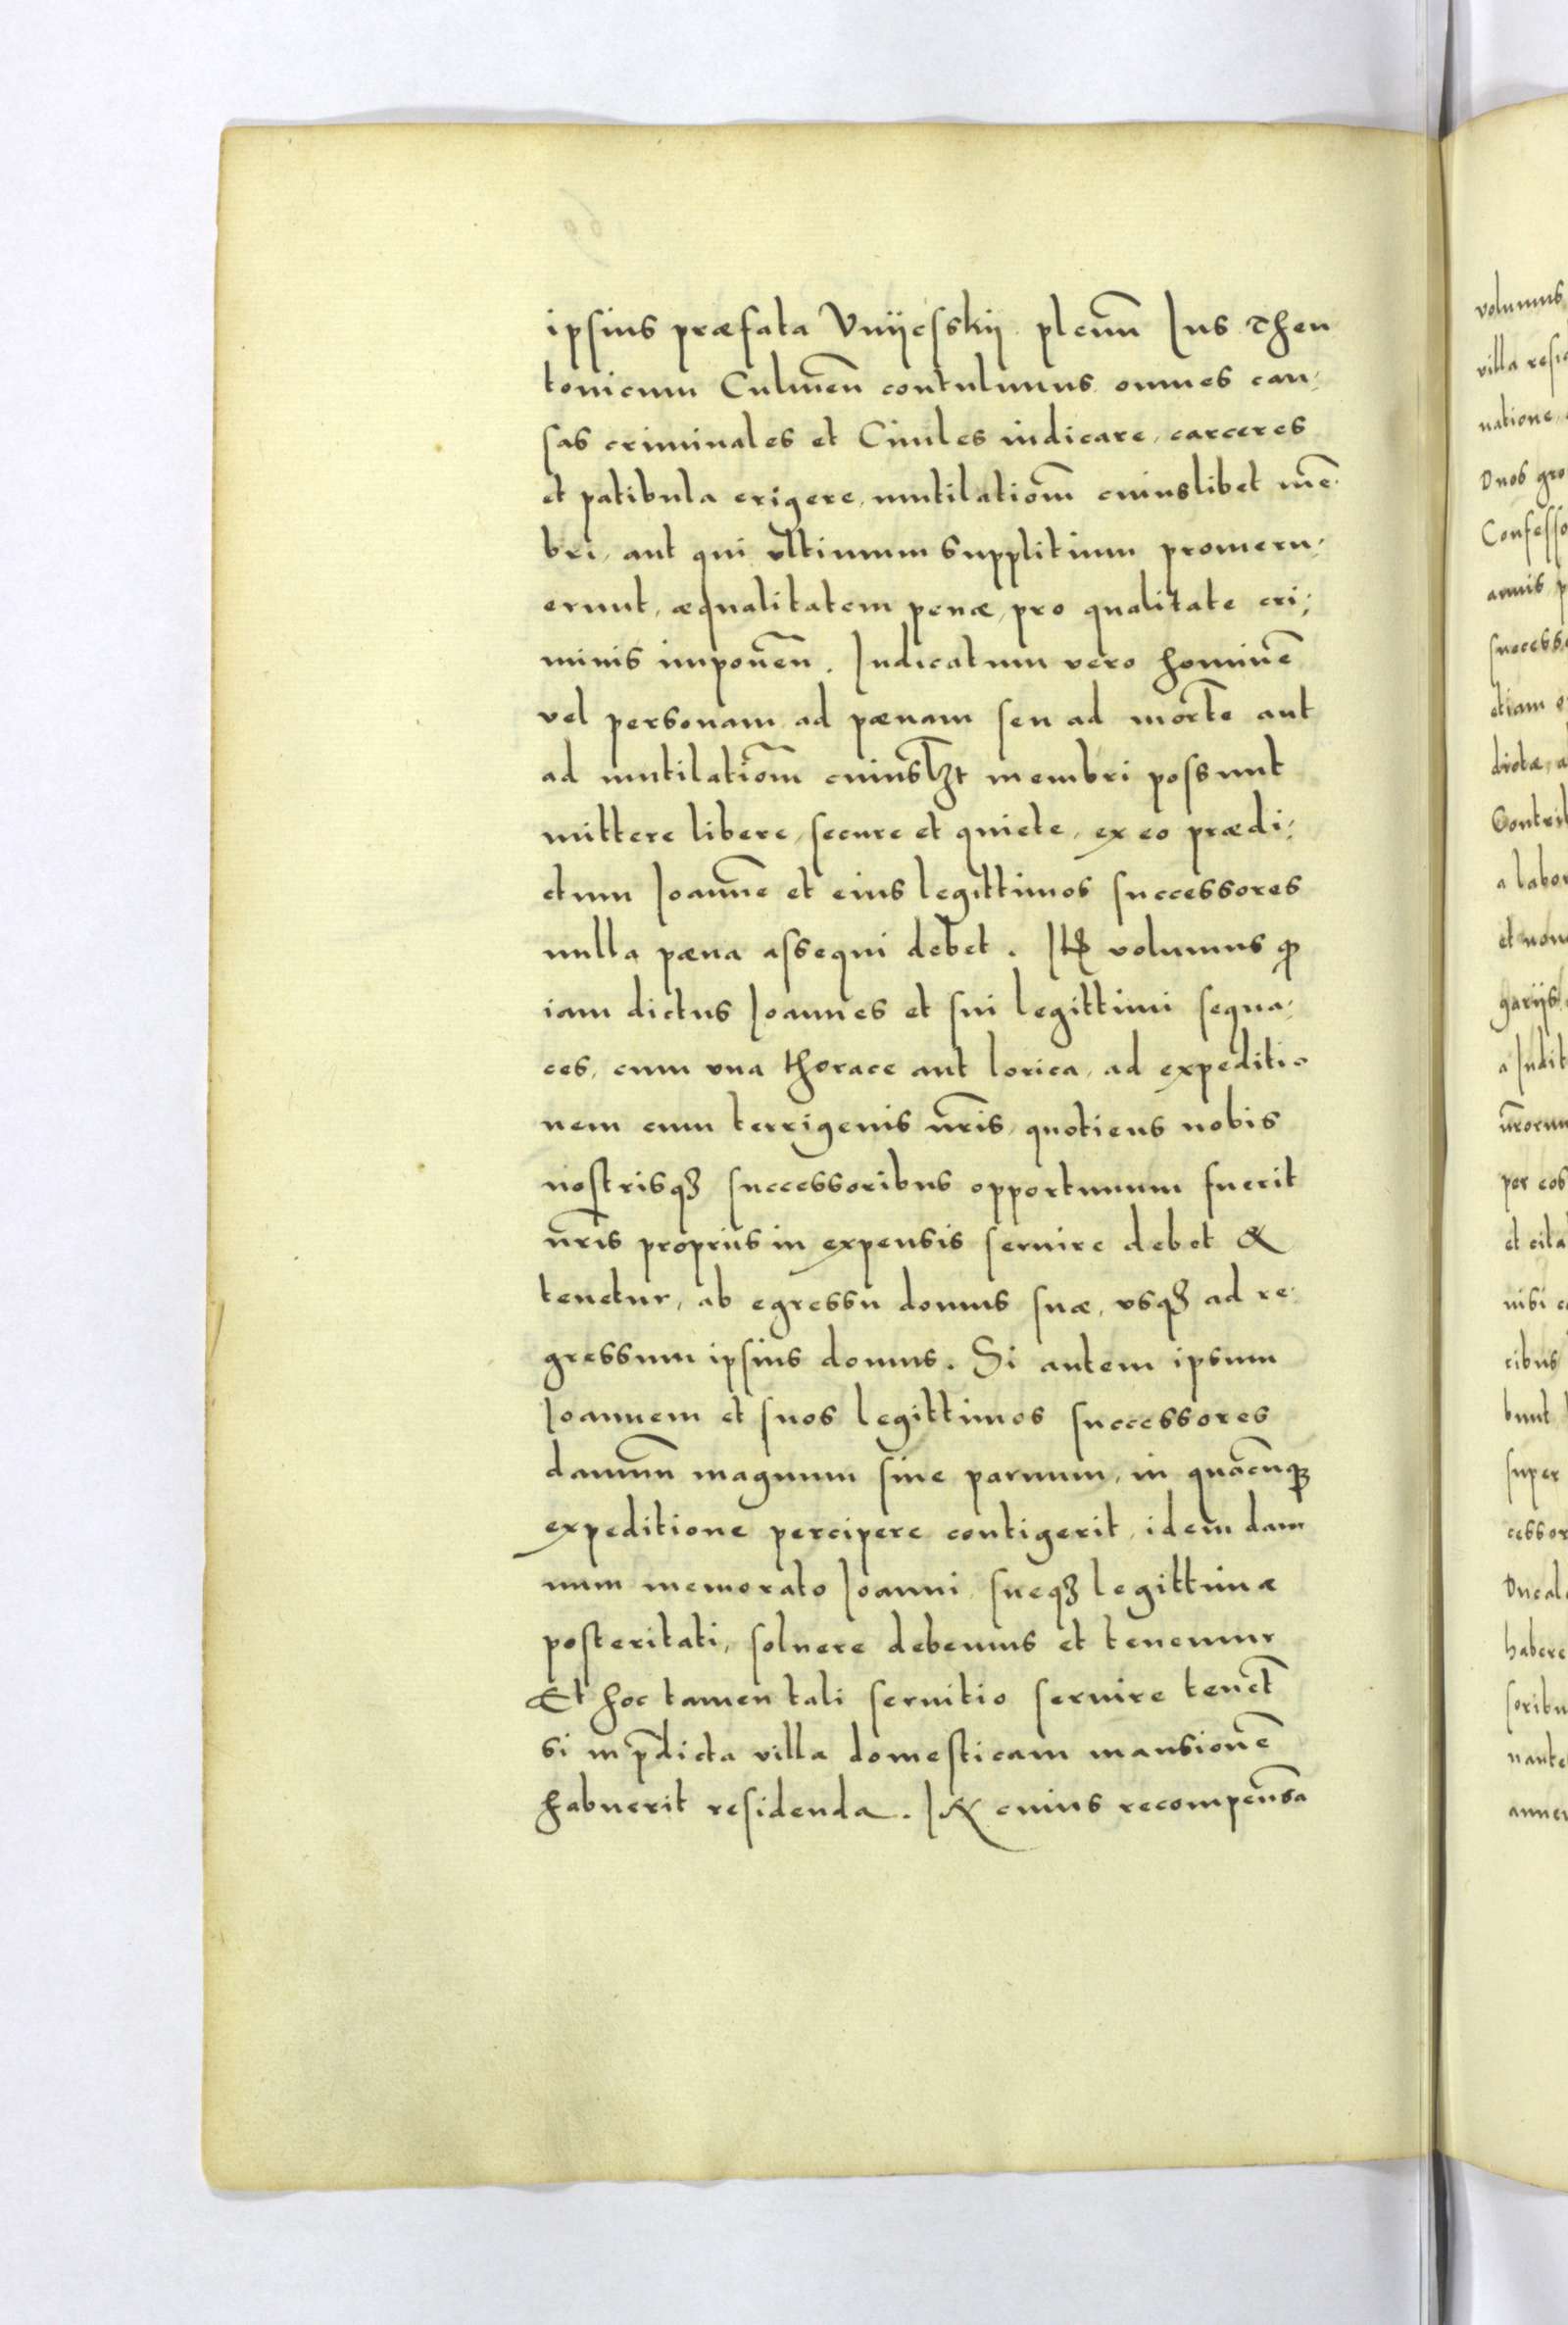 ipsius præfata Vniiesskij plenū Ius Theu
tonicum Culmeñ contulimus omnes cau;
sas criminales et Ciuiles iudicare, carceres
et patibula erigere, mutilatiom̃ cuiuslibet mē
bri, aut qui vltimum supplitium promeru;
erunt, æqualitatem penæ, pro qualitate cri;
minis imponeñ. Iudicatum vero hominē
vel personam ad pœnam seu ad mortē aut
ad mutilatiom̃ cuiuslꝫt membri possunt
mittere libere, secure et quiete, ex eo prædi;
ctum Ioannē et eius legittimos successores
nulla pœna assequi debet. Itē volumus ꝙ
iam dictus Ioannes et sui legittimi sequa;
ces, cum vna thorace aut lorica, ad expeditio
nem cum terrigenis nr̃is, quotiens nobis
nostrisqꝫ successoribus opportunum fuerit
nr̃is proprijs in expensis seruire debet &
tenetur, ab egressu domus suæ, vsqꝫ ad re
gressum ipsius domus. Si autem ipsum
Ioannem et suos legittimos successores
damnū magnum siue paruum, in quacūqꝫ
expeditione percipere contigerit, idem dam
num memorato Ioanni, sueqꝫ legittimæ
posteritati, soluere debemus et tenemur
Et hoc tamen tali seruitio seruire tenet̃
si in p̄dicta villa domesticam mansionē
habuerit residenda. In cuius recompensa
volumus
villa
natione
Duos gro
Confesso
annis p
success
etiam
dictæ, a
Contri
a labor
et non
garijs
a Iudit
nr̃orum
per eos
et cita
nisi c
cibus
bunt
super
cessor
Ducal
habere
soribu
nante